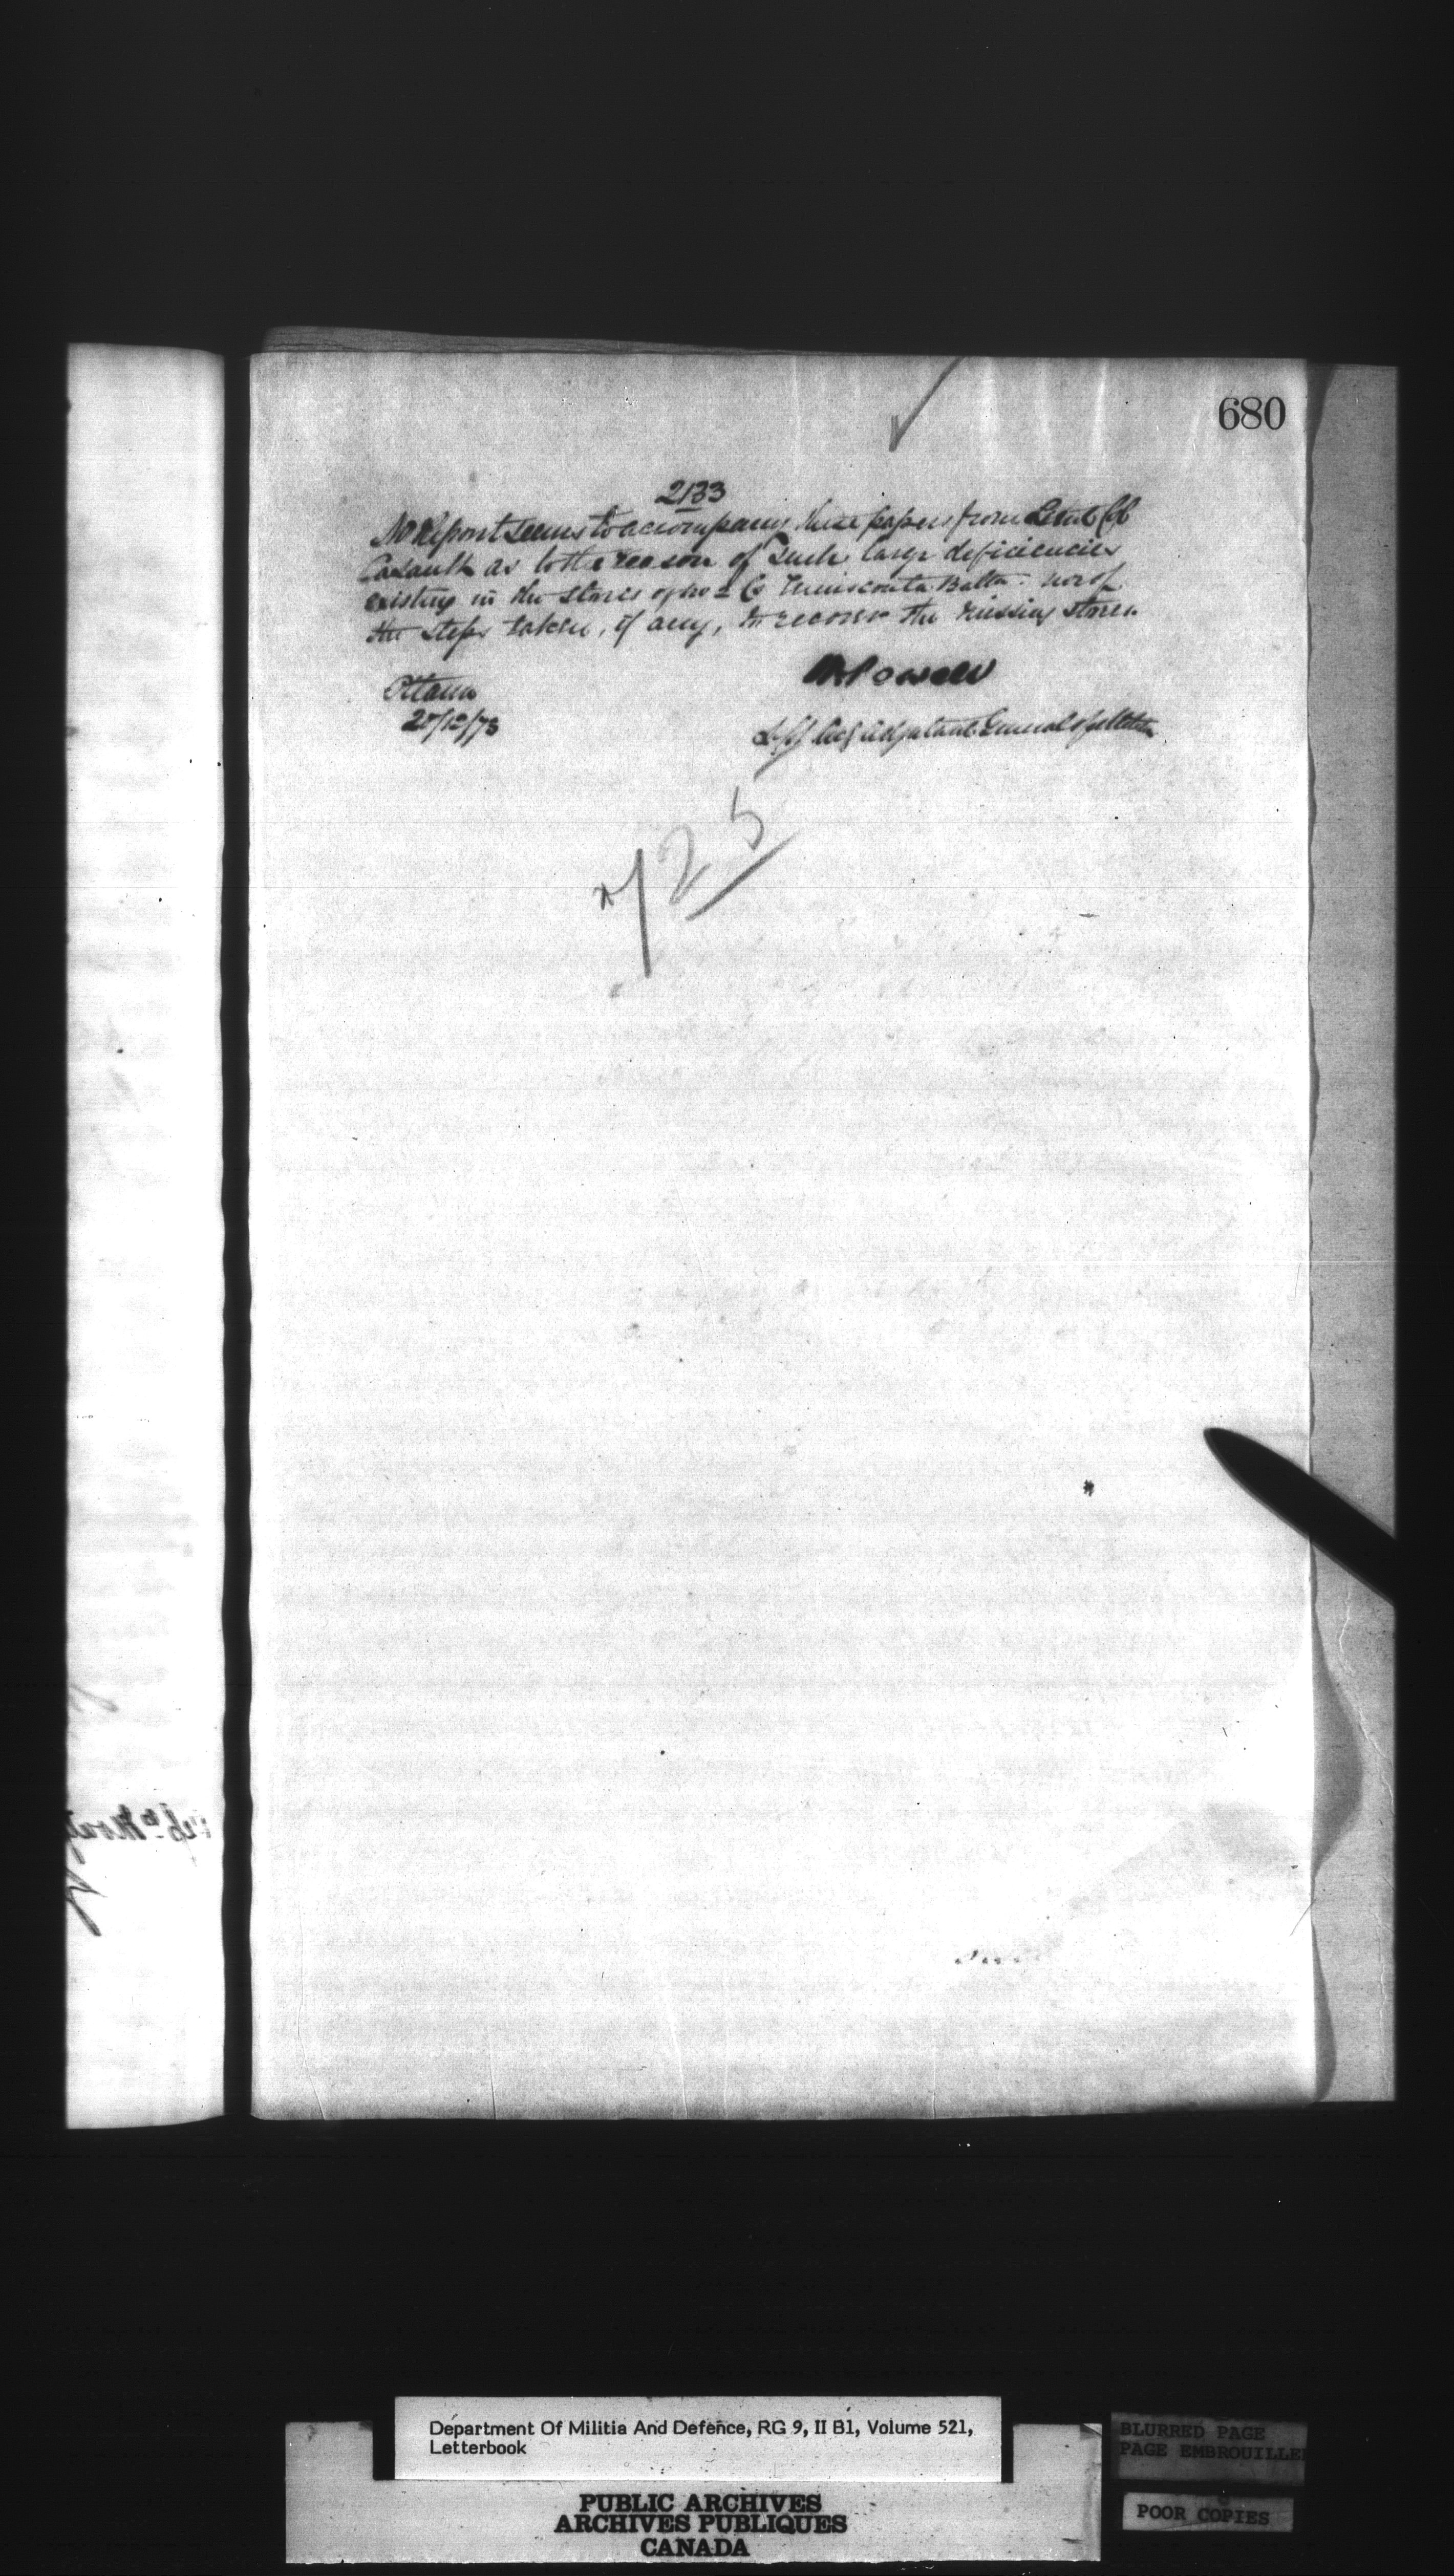 680
2133
No Report seems to accompany these papers from Lieut Col
Casault as to the reason of such large deficiencies
existing in the stores of No 2 Co Temiscouata Battn. nor of
the steps taken, if any, to recover the missing stores.
Ottawa
W Powell
Adjutant General of Militia
725
Department Of Militia And Defence, RG 9, II B1, Volume 521,
Letterbook
BLURRED PAGE
PAGE EMBROUILLE
PUBLIC ARCHIVES
ARCHIVES PUBLIQUES
CANADA
POOR COPIES